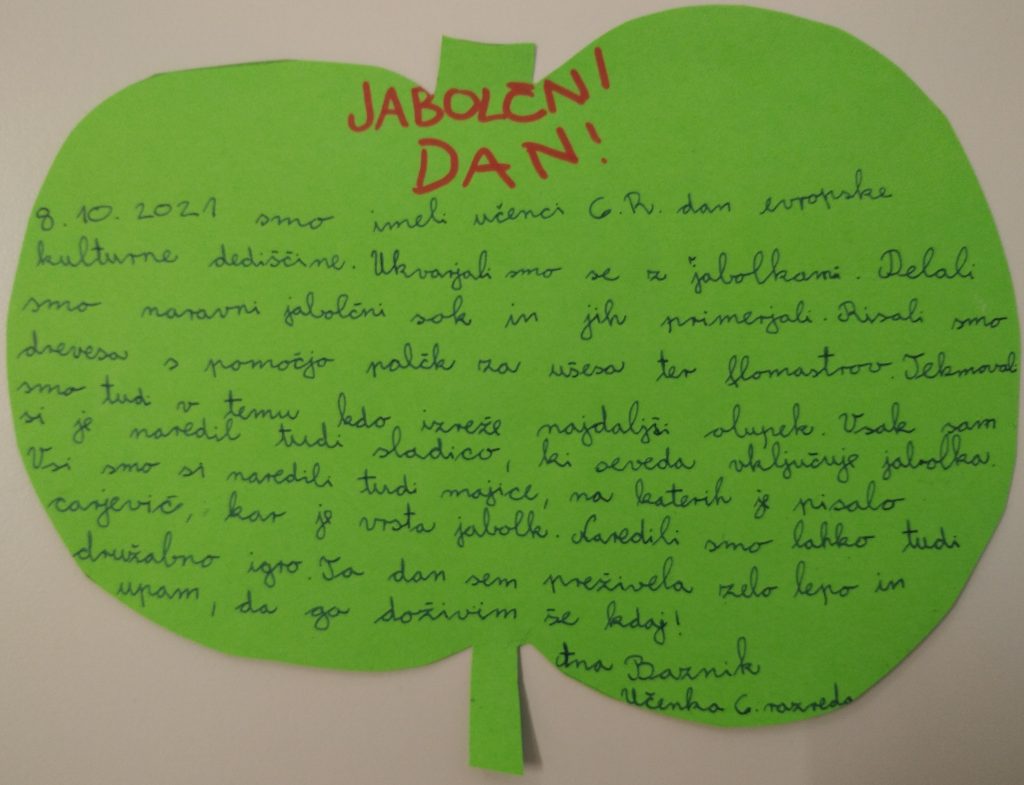 JABOLČNI
DAN!
8.10.2021 smo imeli učenci 6.R. dan evropske
kulturne dediščine. Ukvarjali smo se z jabolkami. Delali
smo naravni jabolčni sok in jih primerjali. Risali smo
drevesa s pomočjo palčk za ušesa ter flomastrov. Tekmoval
smo tudi v temu kdo izreže najdaljši olupek. Vsak sam
si je naredil tudi sladico, ki seveda vključuje jabolka.
Vsi smo si naredili tudi majice, na katerih je pisalo
carjevič, kar je vrsta jabolk. Naredili smo lahko tudi
družabno igro. Ta dan sem preživela zelo lepo in
upam, da ga doživim še kdaj!
Ana Baznik
Učenka 6. razreda